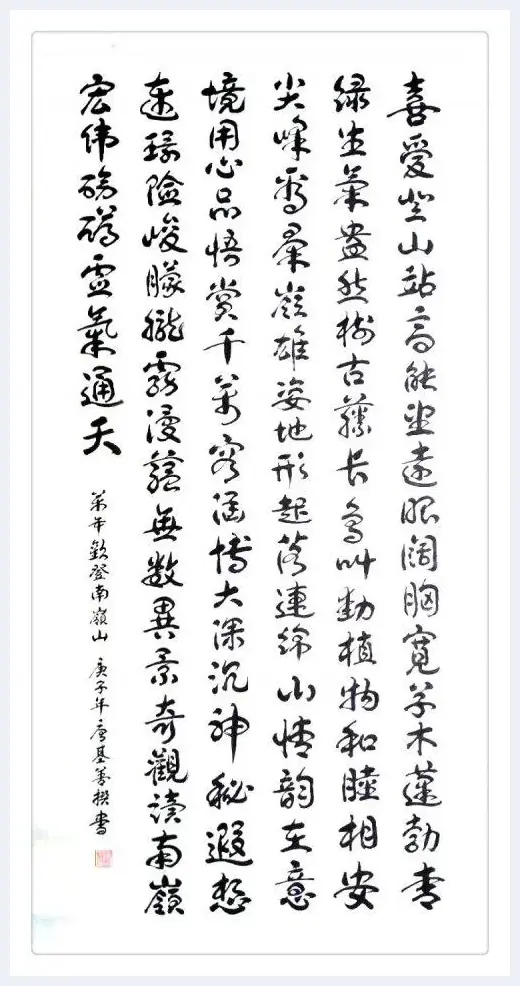 喜愛登山站高能望遠眼闊胸寬草木蓬勃青
绿生氣盎然樹古藤長鳥叫動植物和睦相安
尖峰秀羣嶺雄姿地形起落連綿山情韵在意
境用心品悟賞千萬容涵博大深沉神秘遐想
連環險峻朦朧霧漫蘊無數異景奇觀讀南嶺
宏偉磅礴靈氣通天
萬年歡登南嶺山 庚子年唐基善撰書